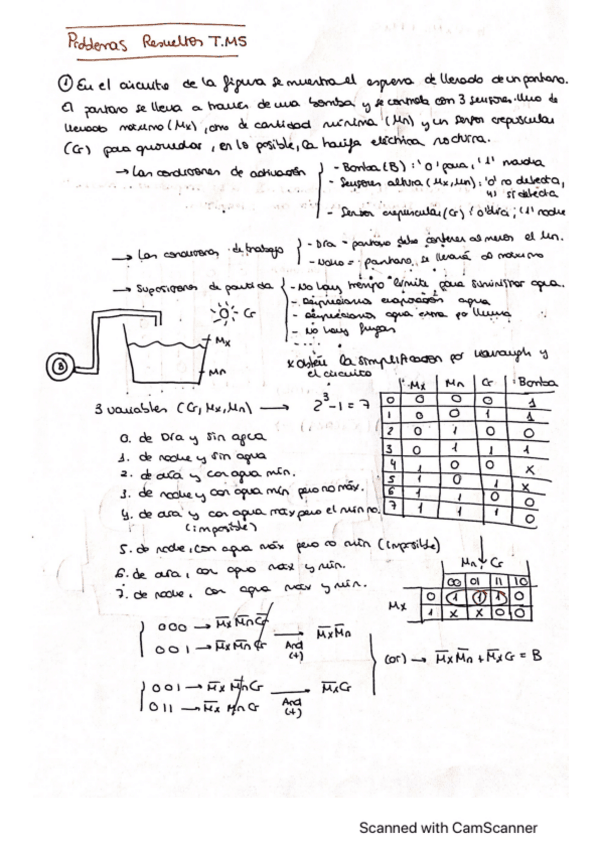 Problemas Resueltos T.M5
① En el circuito de la figura se muestra el esquema de llenado de un pantano.
El pantano se lleva a traves de una bomba y se controla con 3 sensores. Uno de
llenado máximo (Mx), otro de cantidad mínima (Mn) y un sensor crepuscular
(Cr) para aprovechar, en lo posible, la tarifa eléctrica nocturna.
→ Las condiciones de actuación
- Bomba (B): '0' para, '1' marcha
- Sensores altura (Mx, Mn): '0' no detecta,
'1' si detecta
- Sensor crepuscular (Cr): '0' día; '1' noche
→ Las condiciones de trabajo
- Día = pantano debe contener al menos el Mn.
- Noche = pantano se llenará al máximo
→ Suposiciones de partida
- No hay tiempo límite para suministrar agua.
- Despreciamos evaporación agua
- Despreciamos agua extra por lluvia
- No hay fugas
Cr
Mx
Mn
B
* obtén la simplificación por Karnaugh y
el circuito
3 variables (Cr, Mx, Mn) → 2³-1 = 7
0. de Día y sin agua
1. de noche y sin agua
2. de día y con agua mín.
3. de noche y con agua mín pero no máx.
4. de día y con agua max pero el min no.
(imposible)
5. de noche, con agua máx pero no min (imposible)
6. de día, con agua máx y mín.
7. de noche, con agua máx y mín.
Mx Mn Cr Bomba
0 0 0 0 1
1 0 0 1 1
2 0 1 0 0
3 0 1 1 1
4 1 0 0 x
5 1 0 1 x
6 1 1 0 0
7 1 1 1 0
Mn, Cr
00 01 11 10
Mx
0 1 1 1 0
1 x x 0 0
000 → M̅x M̅n C̅r
001 → M̅x M̅n Cr
And
(+)
→ M̅x M̅n
001 → M̅x M̅n Cr
011 → M̅x Mn Cr
And
(+)
→ M̅x Cr
(or) → M̅x M̅n + M̅x Cr = B
Scanned with CamScanner